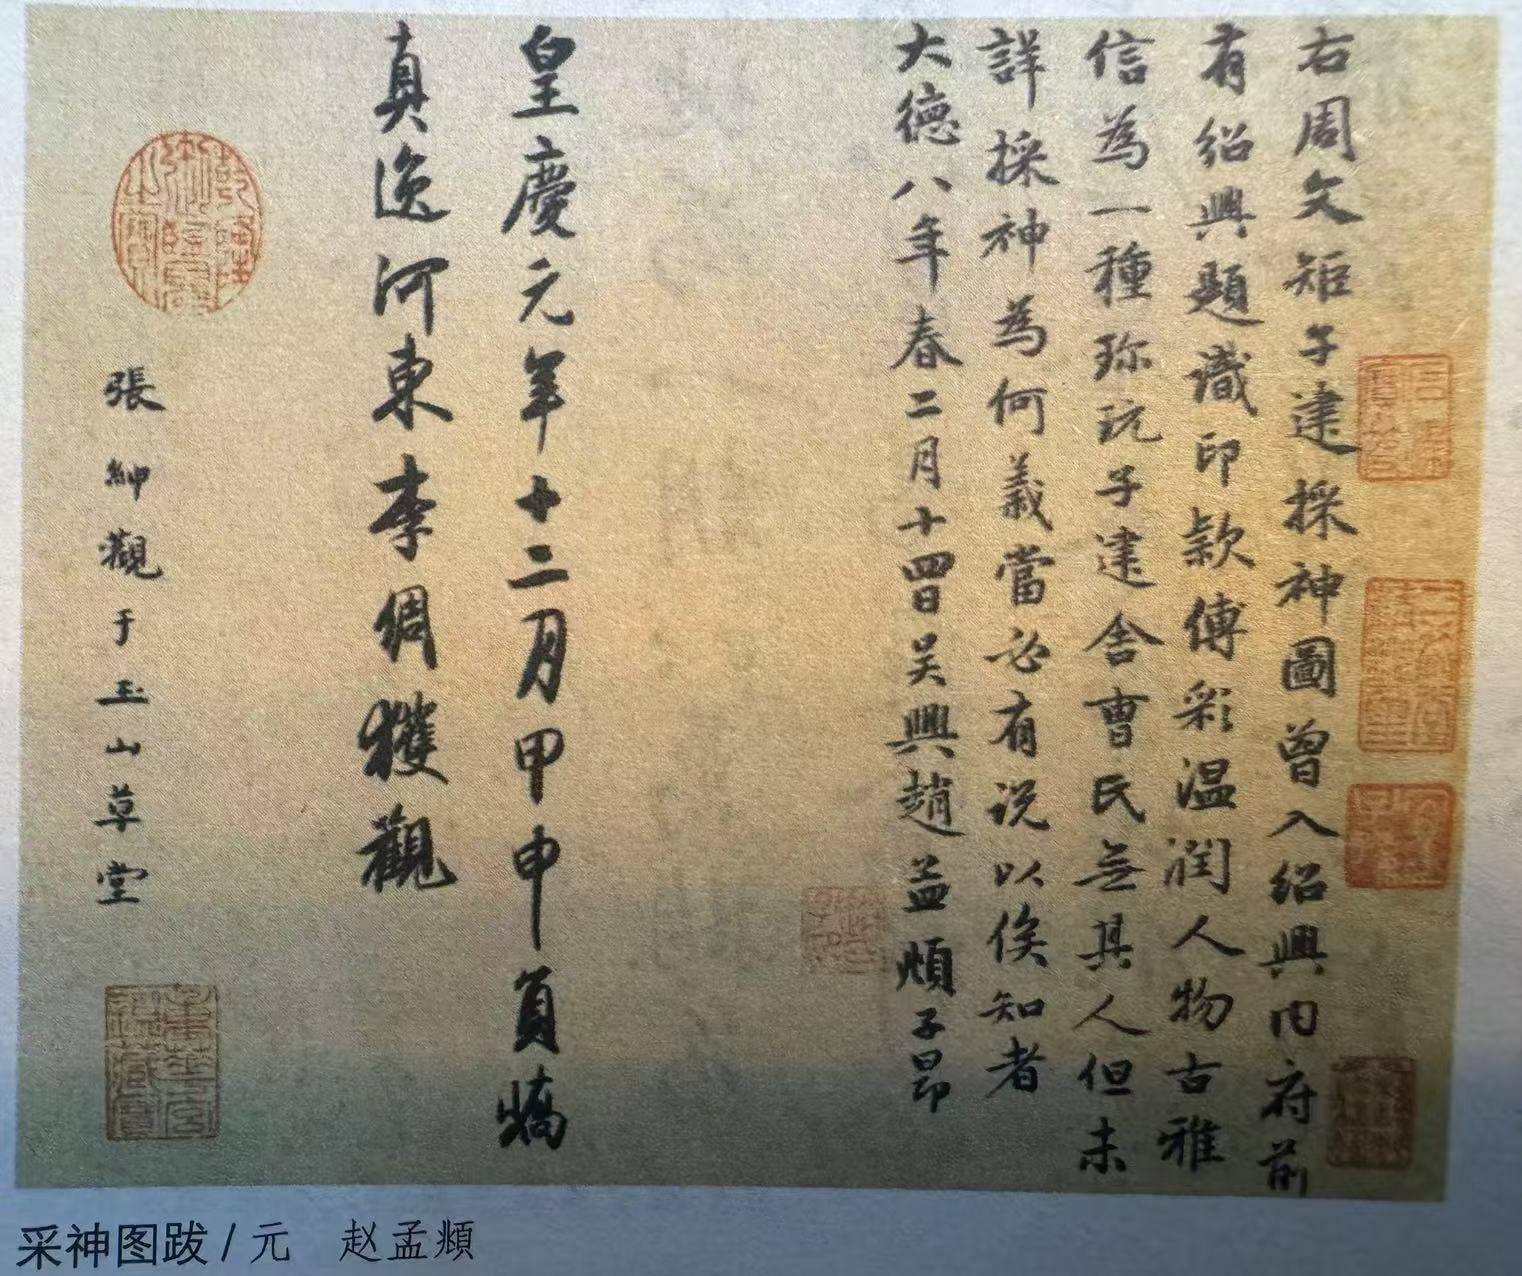 右周文矩子建採神圖曾入紹興内府前
有紹興題識印款傅彩温潤人物古雅
信為一種珎玩子建舎曹氏無其人但未
詳採神為何義當必有说以俟知者
大德八年春二月十四日吴興趙孟頫子昂
皇慶元年十二月甲申員嶠
真逸河東李倜獲觀
張紳觀于玉山草堂
采神图跋/元 赵孟頫